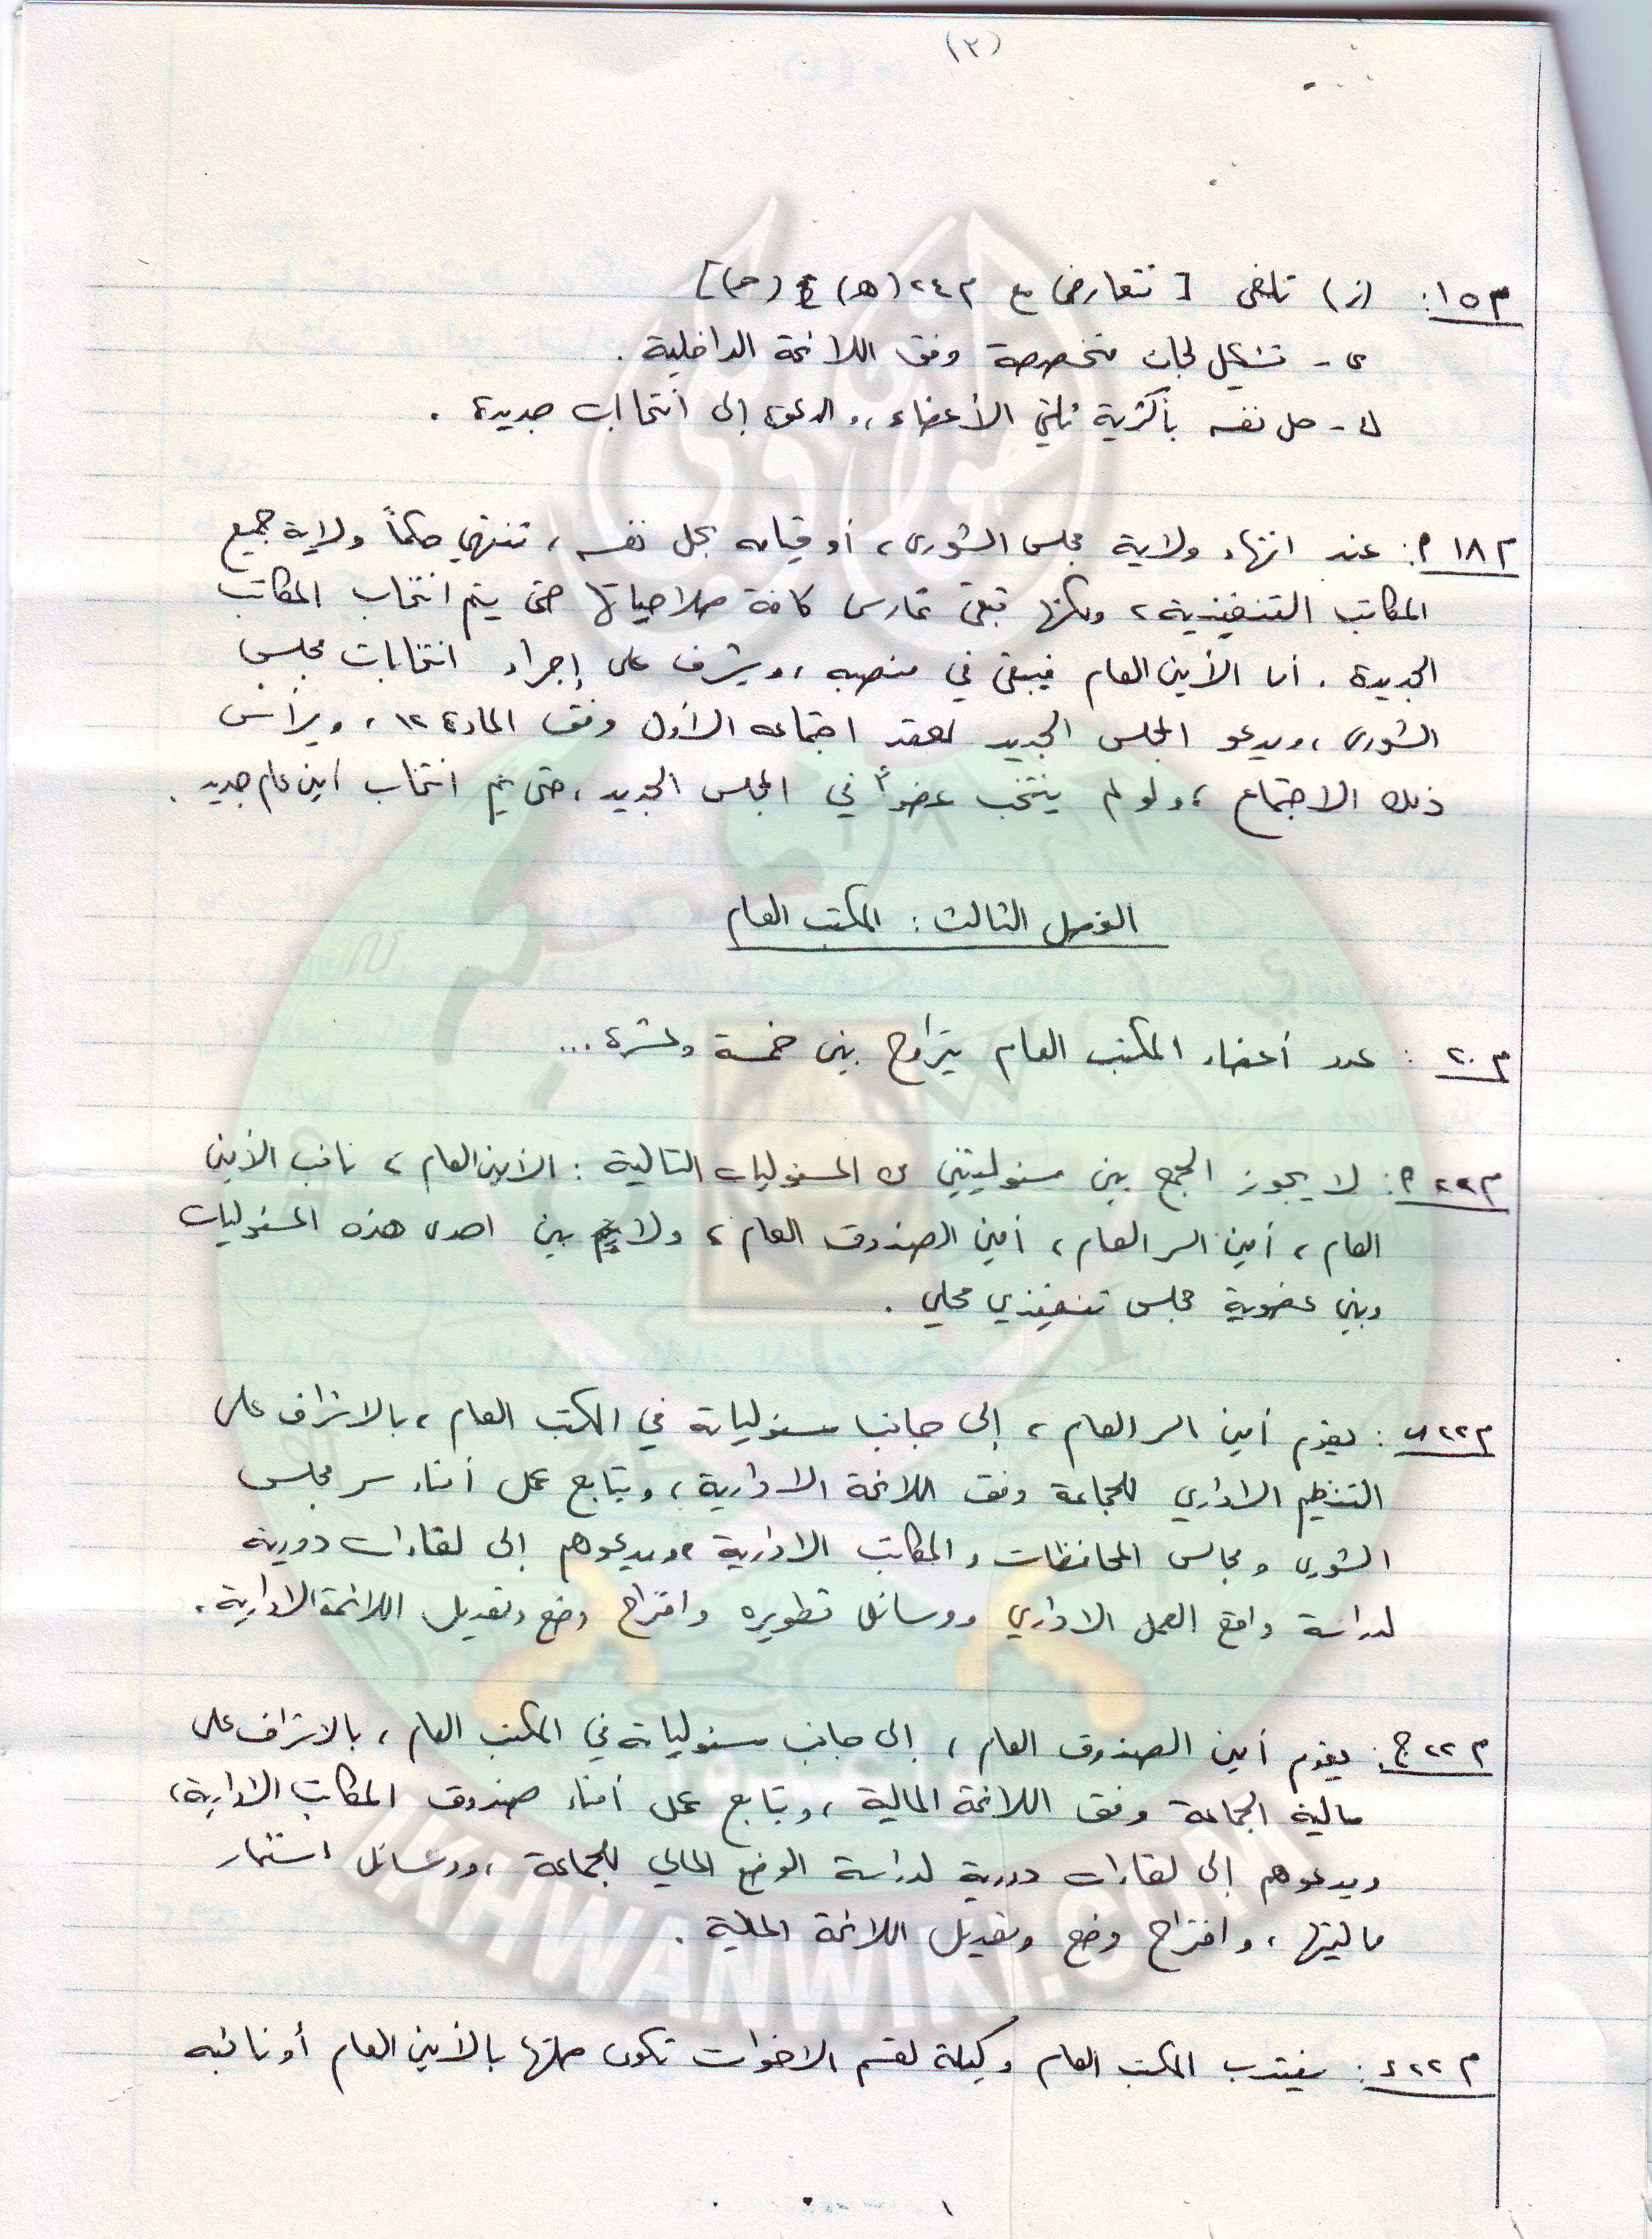 (٣)
م١٥: (ز) تلغى [تتعارض مع م٢٤ (هـ) (ح)]
ى - تشكيل لجان متخصصة وفق اللائحة الداخلية .
ك - حل نفسه بأكثرية ثلثي الأعضاء ، والدعوة إلى انتخابات جديدة .
م١٨ م: عند انتهاء ولاية مجلس الشورى ، أو قيامه بحل نفسه ، تنتهي حكماً ولاية جميع
المكاتب التنفيذية ، ولكنها تبقى تمارس كافة صلاحياتها حتى يتم انتخاب المكاتب
الجديدة . أما الأمين العام فيبقى في منصبه ، ويشرف على إجراء انتخابات مجلس
الشورى ، ويدعو المجلس الجديد لعقد اجتماعه الأول وفق المادة ١٢ ، ويرأس
ذلك الاجتماع ، ولو لم ينتخب عضواً في المجلس الجديد ، حتى يتم انتخاب أمين عام جديد .
الفصل الثالث : المكتب العام
م٢٠ : عدد أعضاء المكتب العام يتراوح بين خمسة وعشرة ...
م٢٢ م: لا يجوز الجمع بين مسئوليتين من المسئوليات التالية : الأمين العام ، نائب الأمين
العام ، أمين السر العام ، أمين الصندوق العام ، ولا بين احدى هذه المسئوليات
وبين عضوية مجلس تنفيذي محلي .
م٢٢ ب : يقوم أمين السر العام ، إلى جانب مسئولياته في المكتب العام ، بالاشراف على
التنظيم الاداري للجماعة وفق اللائحة الادارية ، ويتابع عمل أمناء سر مجلس
الشورى ومجالس المحافظات والمكاتب الادارية ، ويدعوهم إلى لقاءات دورية
لدراسة واقع العمل الاداري ووسائل تطويره واقتراح وضع وتعديل اللائحة الادارية .
م٢٢ ج: يقوم أمين الصندوق العام ، إلى جانب مسئولياته في المكتب العام ، بالاشراف على
مالية الجماعة وفق اللائحة المالية ، ويتابع عمل أمناء صندوق المكاتب الادارية ،
ويدعوهم إلى لقاءات دورية لدراسة الوضع المالي للجماعة ، ووسائل استثمار
ماليتها ، واقتراح وضع وتعديل اللائحة المالية .
م٢٢ د: ينتدب المكتب العام وكيلة لقسم الاخوات تكون صلتها بالأمين العام أو نائبه
IKHWANWIKI.COM